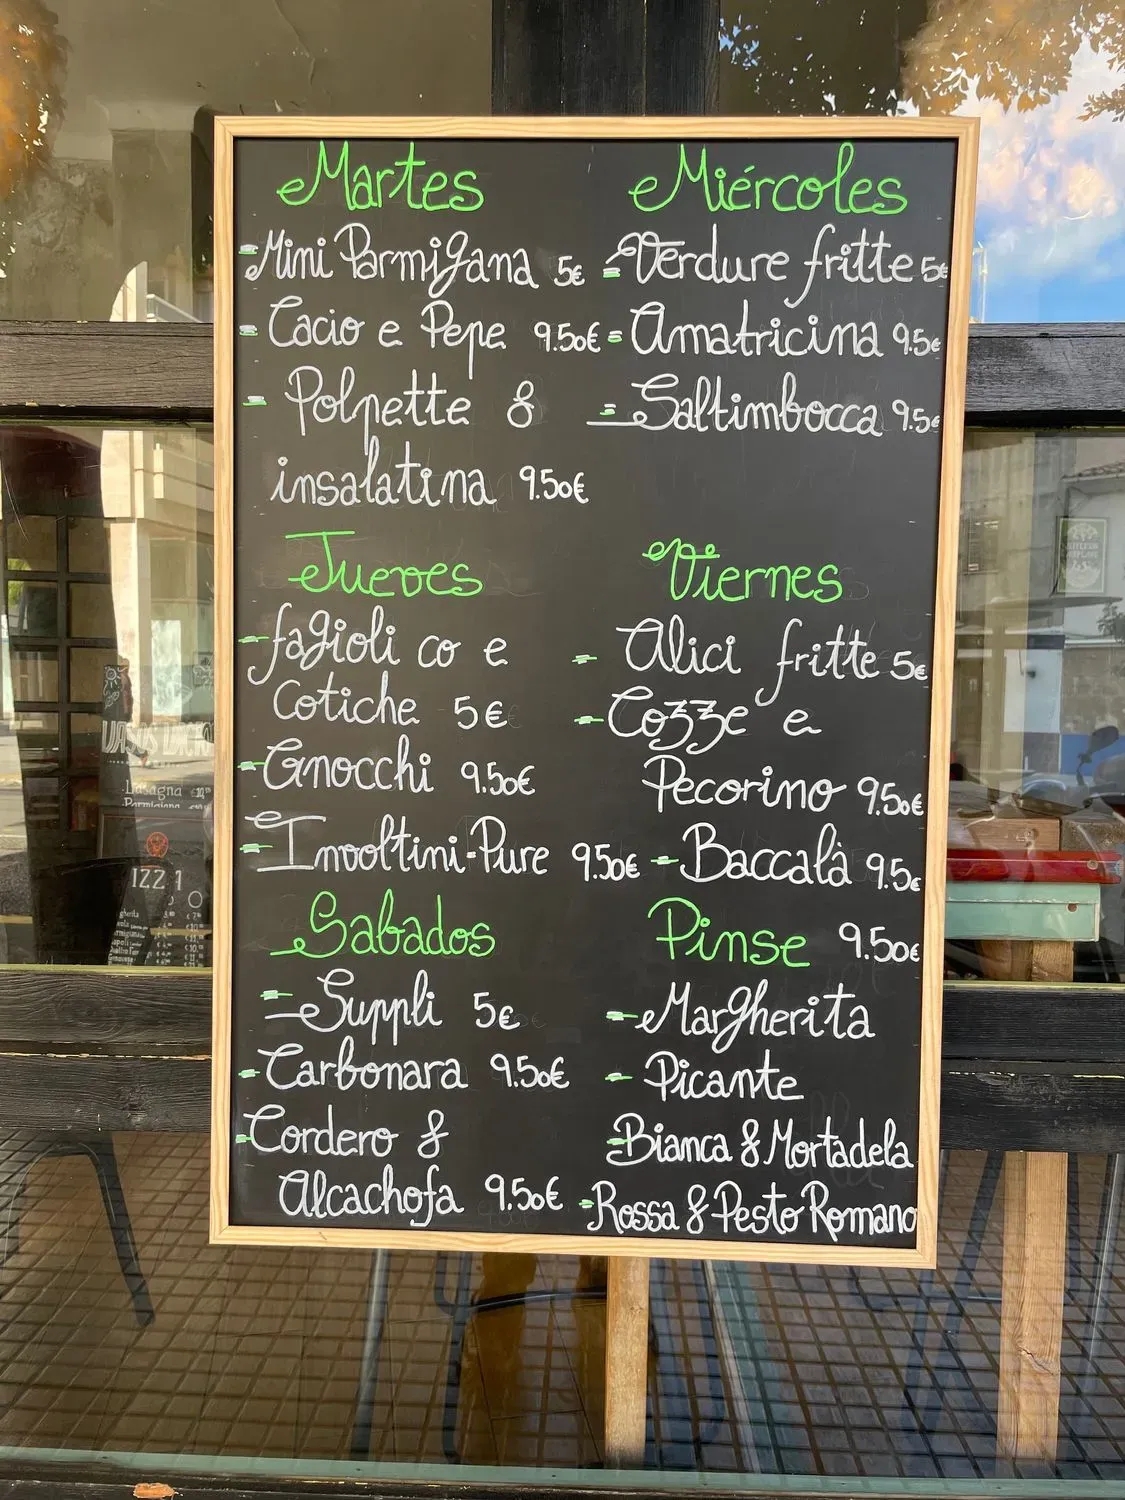 Martes
- Mini Parmigana 5€
- Cacio e Pepe 9.50€
- Polpette &
insalatina 9.50€
Miércoles
- Verdure fritte 5€
- Amatricina 9.5€
- Saltimbocca 9.5€
Jueves
- fagioli co e
Cotiche 5€
- Gnocchi 9.50€
- Involtini-Pure 9.50€
Viernes
- Alici fritte 5€
- Cozze e
Pecorino 9.50€
- Baccalà 9.5€
Sabados
- Suppli 5€
- Carbonara 9.50€
- Cordero &
Alcachofa 9.50€
Pinse 9.50€
- Margherita
- Picante
- Bianca & Mortadela
- Rossa & Pesto Romano
Lasagna
Parmigiana
IZZ